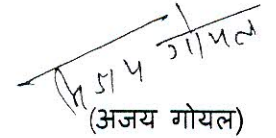 अजय गोयल
(अजय गोयल)